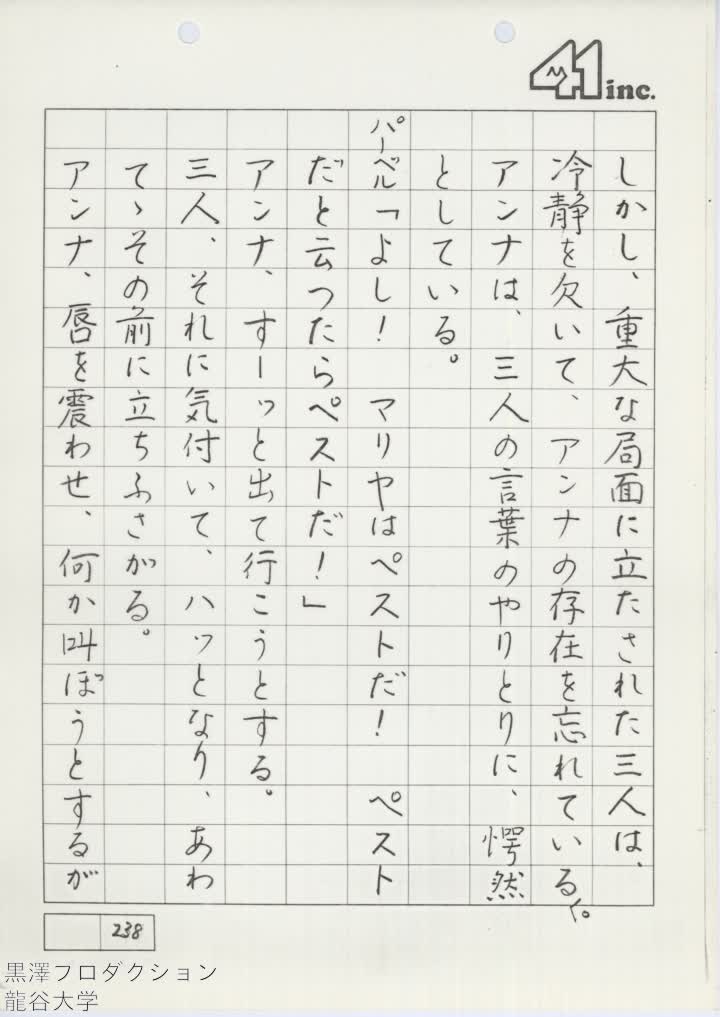 41 inc.
しかし、重大な局面に立たされた三人は、
冷静を欠いて、アンナの存在を忘れている。
アンナは、三人の言葉のやりとりに、愕然
としている。
パーベル「よし! マリヤはペストだ! ペスト
だと云つたらペストだ!」
アンナ、すーッと出て行こうとする。
三人、それに気付いて、ハッとなり、あわ
てゝその前に立ちふさがる。
アンナ、唇を震わせ、何か叫ぼうとするが
238
黒澤プロダクション
龍谷大学